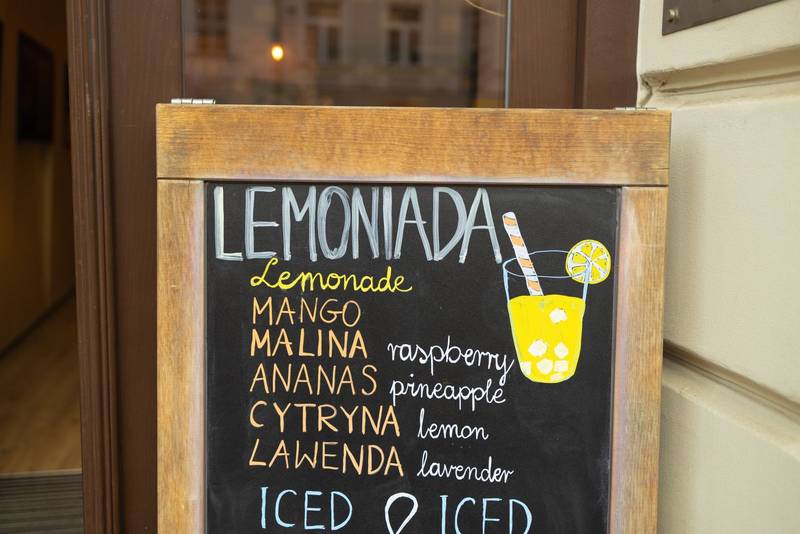 LEMONIADA
Lemonade
MANGO
MALINA raspberry
ANANAS pineapple
CYTRYNA lemon
LAWENDA lavender
ICED ICED